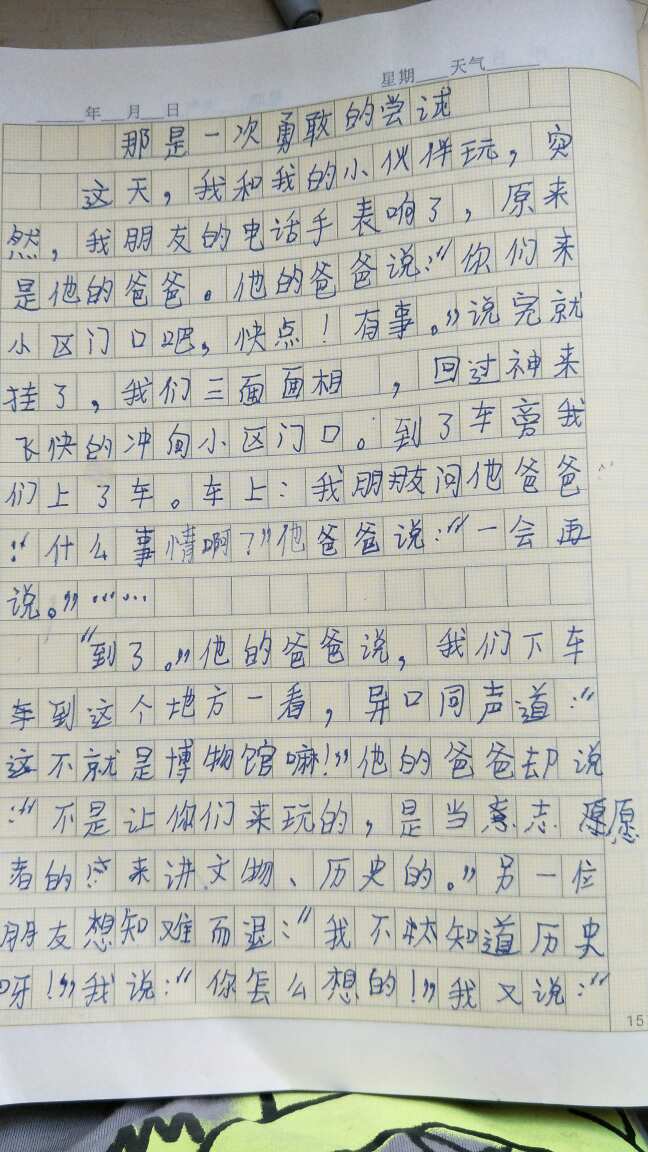 星期____天气____
____年__月__日
那是一次勇敢的尝试
这天，我和我的小伙伴玩，突
然，我朋友的电话手表响了，原来
是他的爸爸。他的爸爸说：“你们来
小区门口吧，快点！有事。”说完就
挂了，我们三面面相，回过神来
飞快的冲向小区门口。到了车旁我
们上了车。车上：我朋友问他爸爸
：“什么事情啊？”他爸爸说：“一会再
说。”……
“到了。”他的爸爸说，我们下车
车到这个地方一看，异口同声道：“
这不就是博物馆嘛！”他的爸爸却说
：“不是让你们来玩的，是当意志愿
者的来讲文物、历史的。”另一位
朋友想知难而退：“我不太知道历史
呀！”我说：“你怎么想的！”我又说：“
15